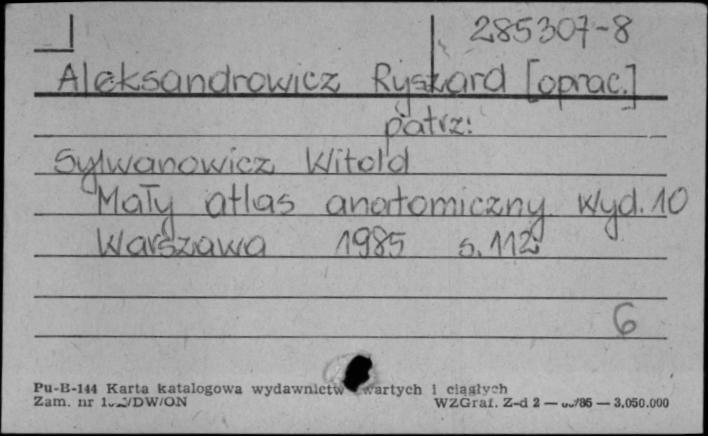 285307-8
Aleksandrowicz Ryszard [oprac.]
patrz:
Sylwanowicz Witold
Mały atlas anatomiczny Wyd. 10
Warszawa 1985 s. 112
6
Pu-B-144 Karta katalogowa wydawnictw zwartych i ciągłych
Zam. nr /DW/ON WZGraf. Z-d 2 — /86 — 3.050.000